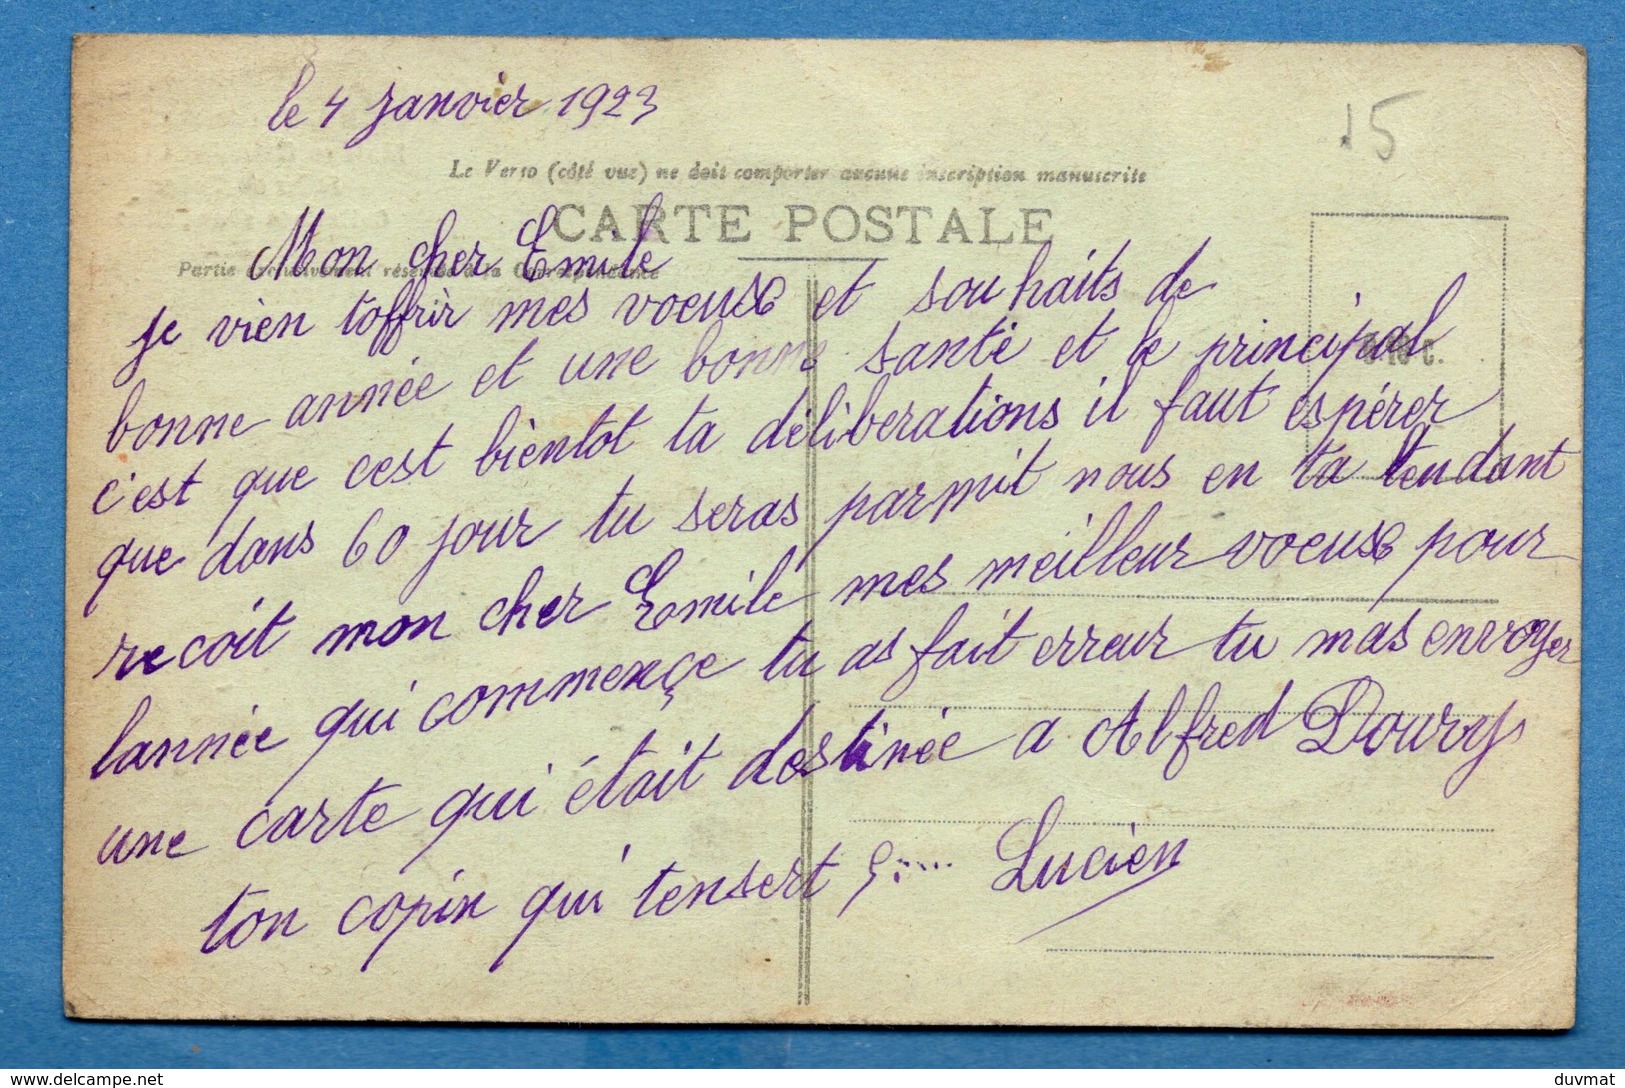 le 4 janvier 1923
15
Le Verso (côté vue) ne doit comporter aucune inscription manuscrite
CARTE POSTALE
Partie exclusivement réservée à la Correspondance
Mon cher Emile
je vien toffrir mes voeux et souhaits de
bonne année et une bonne santé et le principal
c'est que cest bientot ta déliberations il faut espérer
que dans 60 jour tu seras parmit nous en ta tendant
recoit mon cher Emile mes meilleur voeux pour
lannée qui commençe tu as fait erreur tu mas envoyer
une carte qui était destinée a Alfred Doury
ton copin qui tensert 5.... Lucien
duvmat